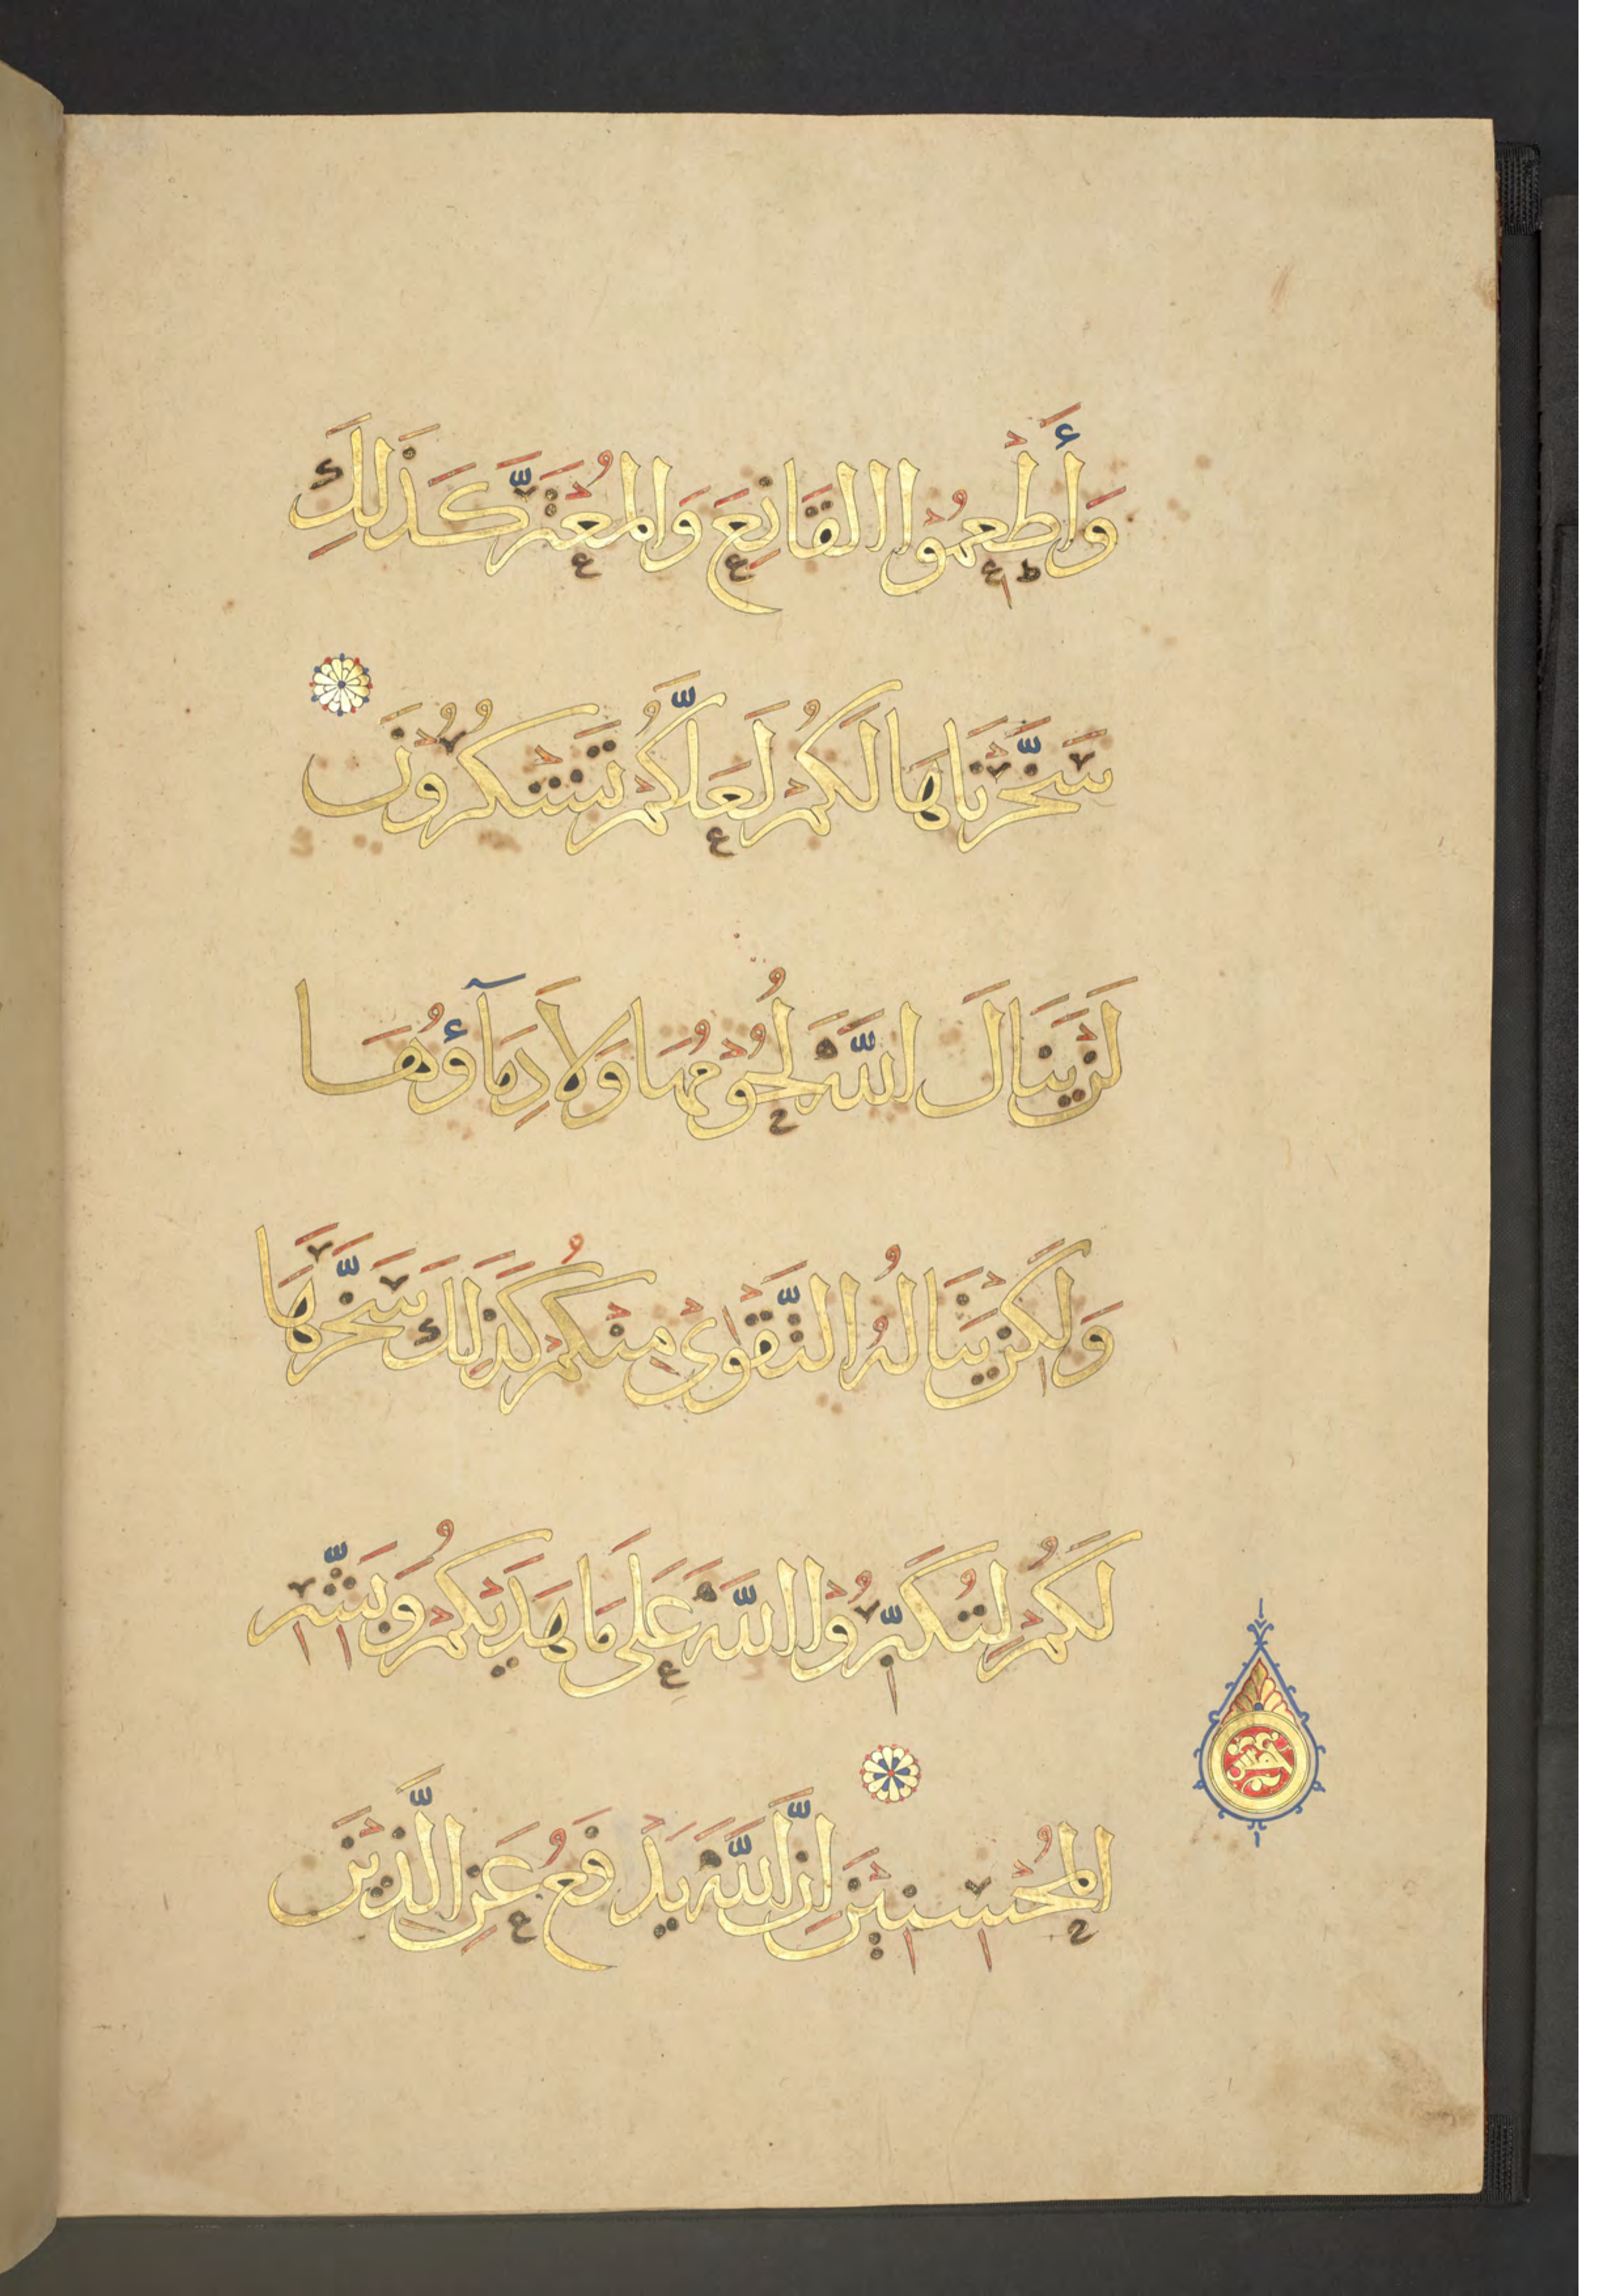 وَأَطْعِمُوا الْقَانِعَ وَالْمُعْتَرَّ كَذَلِكَ
سَخَّرْنَاهَا لَكُمْ لَعَلَّكُمْ تَشْكُرُونَ
لَنْ يَنَالَ اللَّهَ لُحُوْمُهَا وَلَا دِمَآؤُهَا
وَلَكِنْ يَنَالُهُ التَّقْوَىٰ مِنْكُمْ كَذَلِكَ سَخَّرَهَا
لَكُمْ لِتُكَبِّرُوْا اللَّهَ عَلَى مَا هَدَيكُمْ وَبَشِّرِ
الْمُحْسِنِيْنَ اِنَّ اللَّهَ يَدْفَعُ عَنِ الَّذِيْنَ